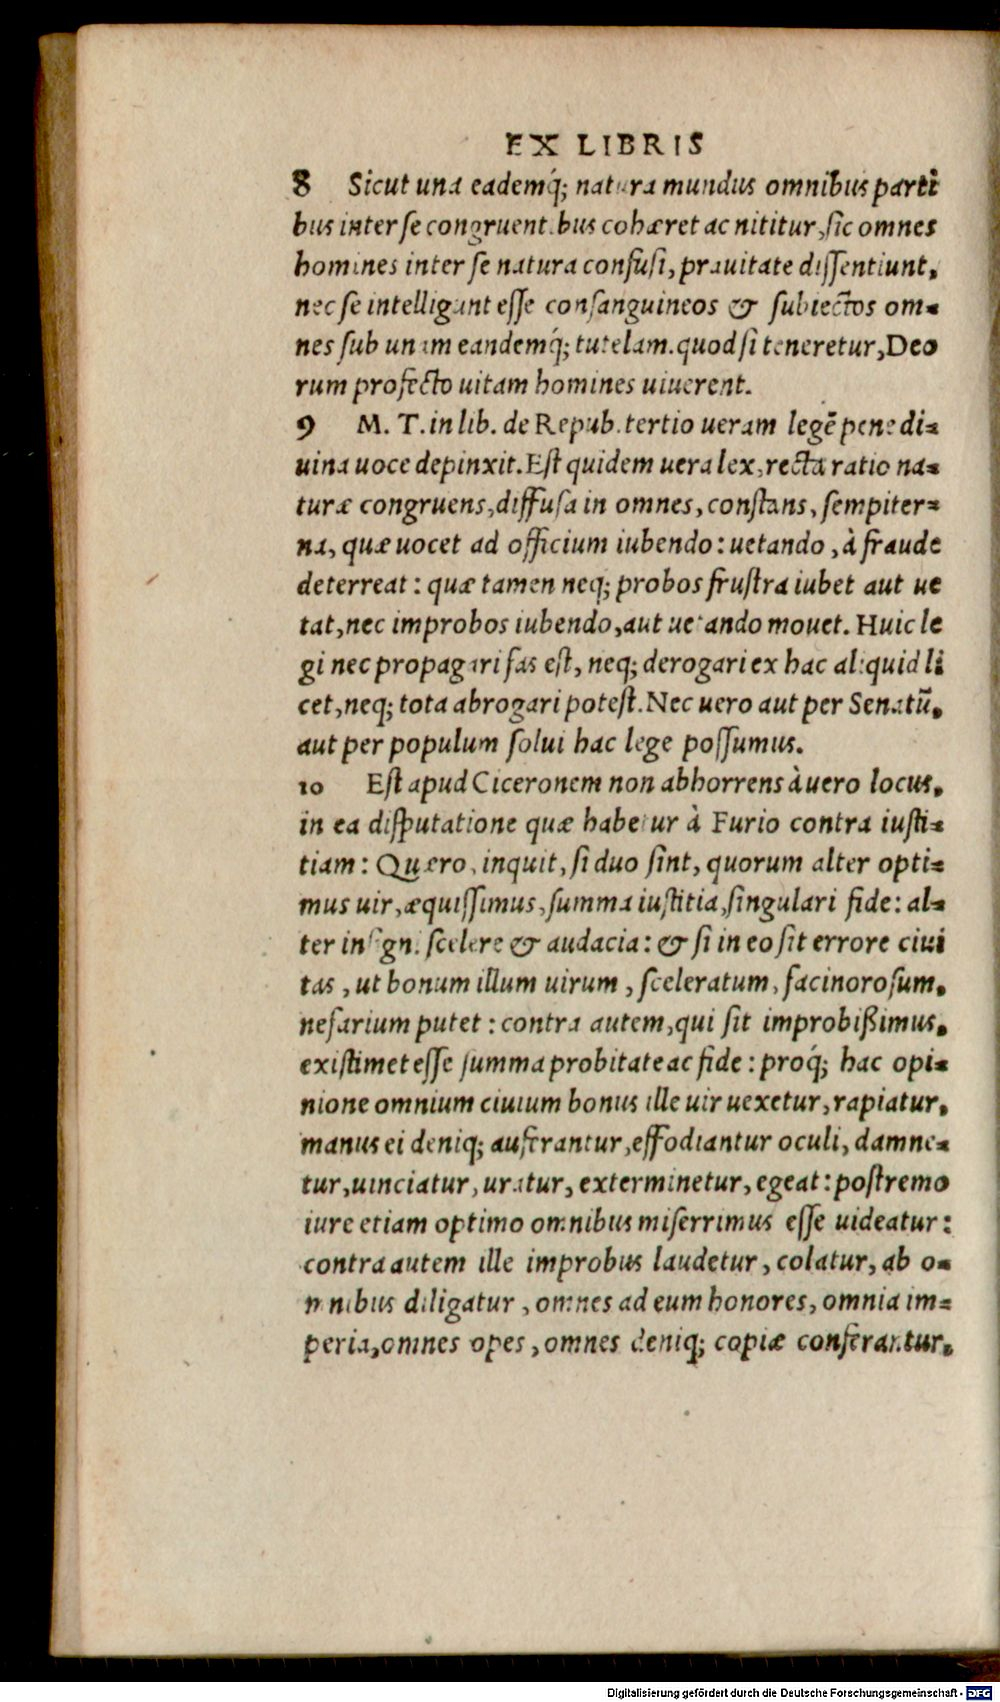 EX LIBRIS
8 Sicut una eademq́; natura mundus omnibus parti
bus inter se congruentibus cohæret ac nititur, sic omnes
homines inter se natura confusi, prauitate dissentiunt,
nec se intelligunt esse consanguineos & subiectos om-
nes sub unam eandemq́; tutelam. quod si teneretur, Deo
rum profecto uitam homines uiuerent.
9 M. T. in lib. de Repub. tertio ueram legē pene di-
uina uoce depinxit. Est quidem uera lex, recta ratio na-
turæ congruens, diffusa in omnes, constans, sempiter-
na, quæ uocet ad officium iubendo: uetando, à fraude
deterreat: quæ tamen neq; probos frustra iubet aut ue
tat, nec improbos iubendo, aut uetando mouet. Huic le
gi nec propagari fas est, neq; derogari ex hac aliquid li
cet, neq; tota abrogari potest. Nec uero aut per Senatū,
aut per populum solui hac lege possumus.
10 Est apud Ciceronem non abhorrens à uero locus,
in ea disputatione quæ habetur à Furio contra iusti-
tiam: Quæro, inquit, si duo sint, quorum alter opti-
mus uir, æquissimus, summa iustitia, singulari fide: al-
ter insigni scelere & audacia: & si in eo sit errore ciui
tas, ut bonum illum uirum, sceleratum, facinorosum,
nefarium putet: contra autem, qui sit improbißimus,
existimet esse summa probitate ac fide: proq́; hac opi-
nione omnium ciuium bonus ille uir uexetur, rapiatur,
manus ei deniq; auferantur, effodiantur oculi, damne-
tur, uinciatur, uratur, exterminetur, egeat: postremo
iure etiam optimo omnibus miserrimus esse uideatur:
contra autem ille improbus laudetur, colatur, ab o-
mnibus diligatur, omnes ad eum honores, omnia im-
peria, omnes opes, omnes deniq; copiæ conferantur,
Digitalisierung gefördert durch die Deutsche Forschungsgemeinschaft - DFG